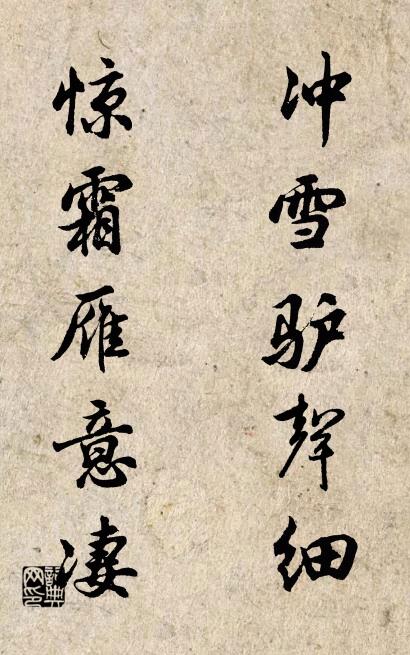 冲雪驴聲细
惊霜雁意凄